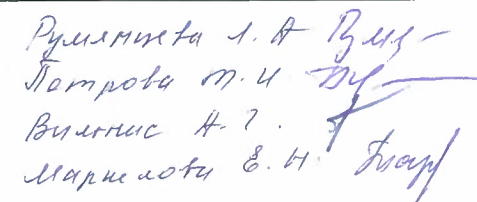 Румянцева Л. А
Петрова Т. И
Вильнис А. Г.
Маркелова Е. Н.